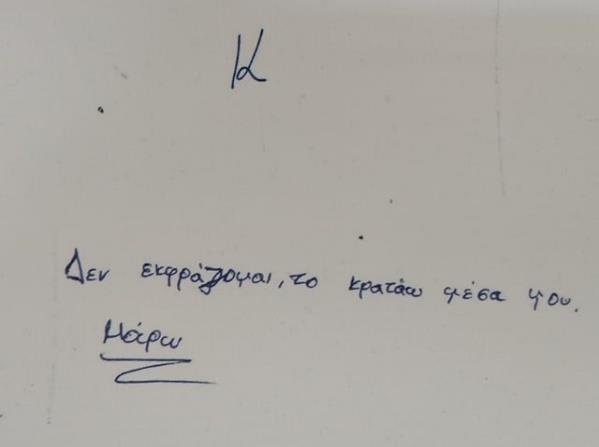 Κ
Δεν εκφράζομαι, το κρατάω μέσα μου.
Μάρω